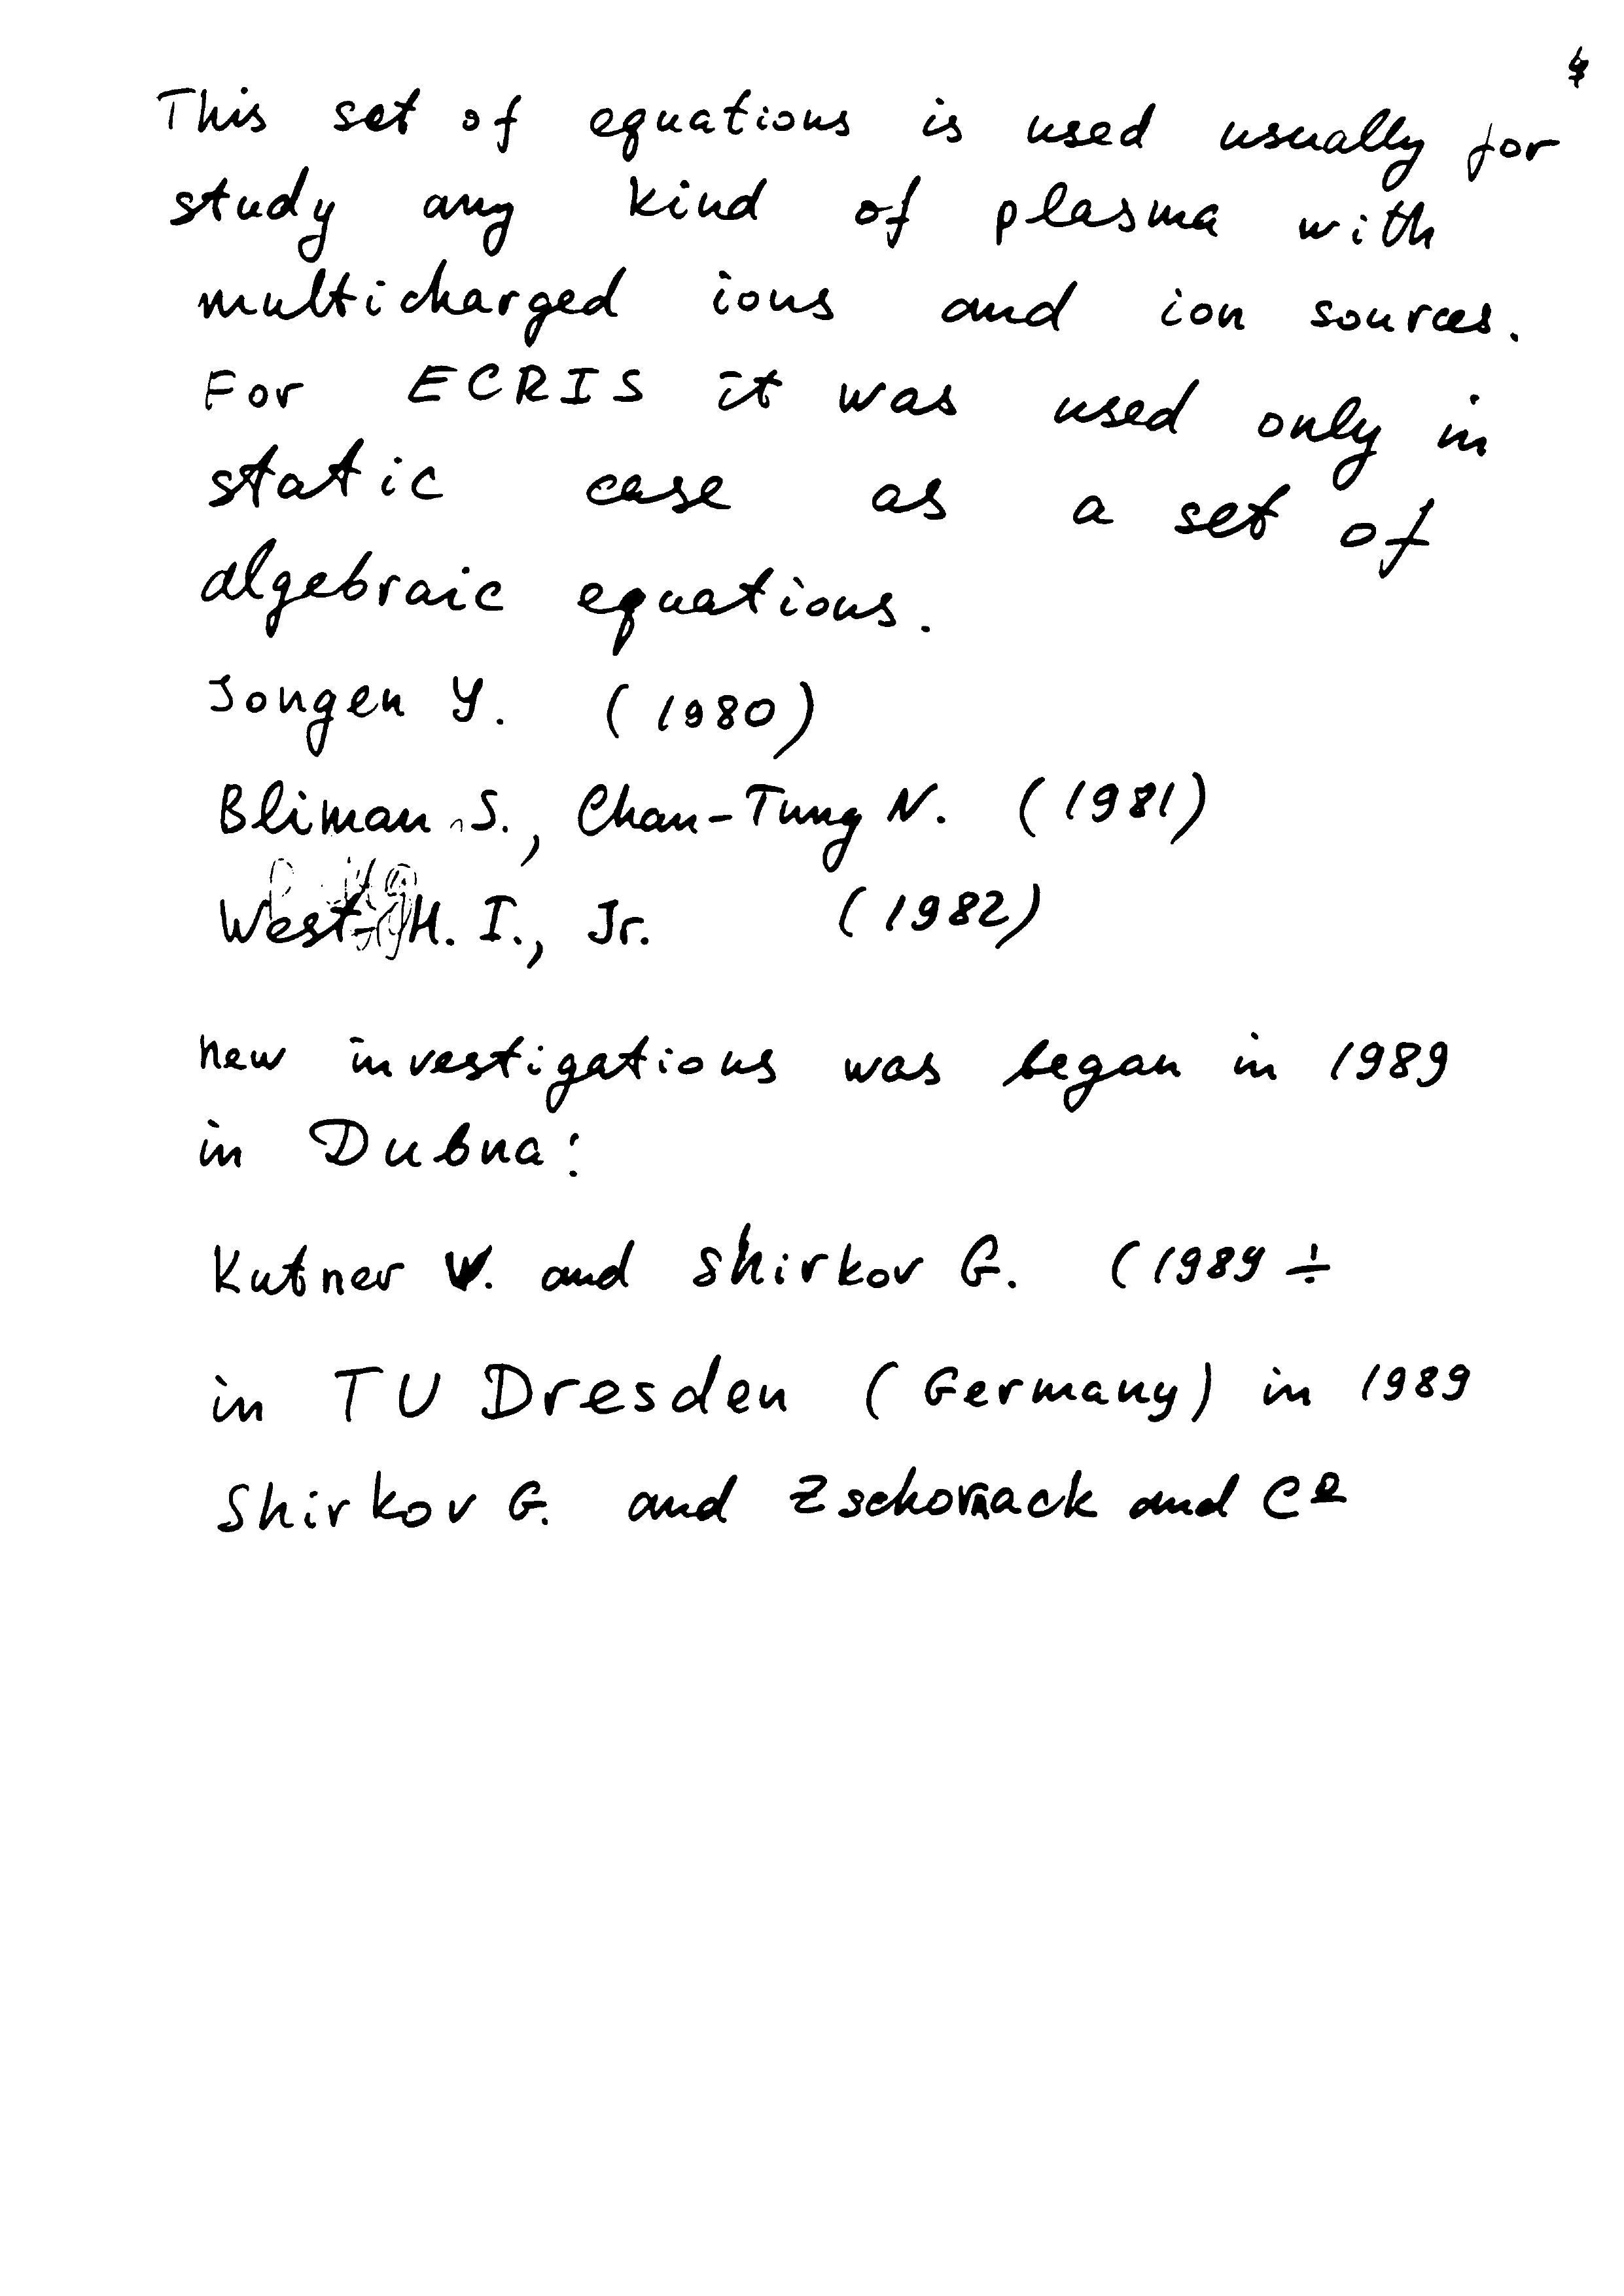 4
This set of equations is used usually for
study any kind of plasma with
multicharged ions and ion sources.
For ECRIS it was used only in
static case as a set of
algebraic equations.
Jongen Y. (1980)
Bliman S., Chan-Tung N. (1981)
West H. I., Jr. (1982)
new investigations was began in 1989
in Dubna:
Kutner V. and Shirkov G. (1989 ÷
in TU Dresden (Germany) in 1989
Shirkov G. and Zschornack and Co